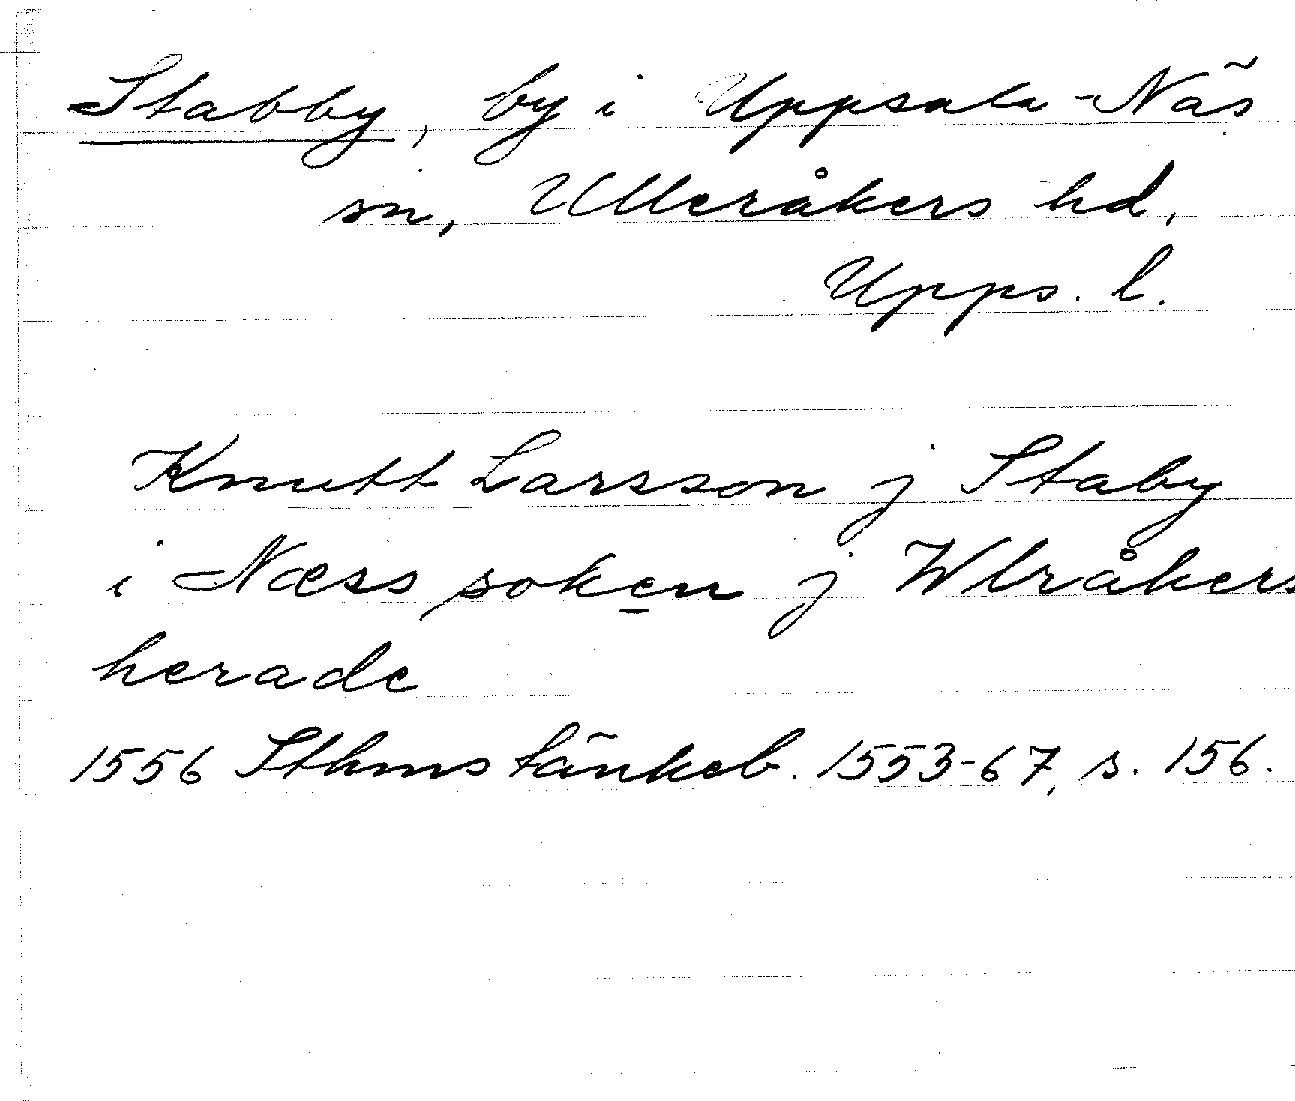 Stabby, by i Uppsala-Näs
sn, Ulleråkers hd,
Upps. l.
Knutt Larsson j Staby
i Næss soken j Wlråkers
herade
1556 Sthms tänkeb. 1553-67, s. 156.